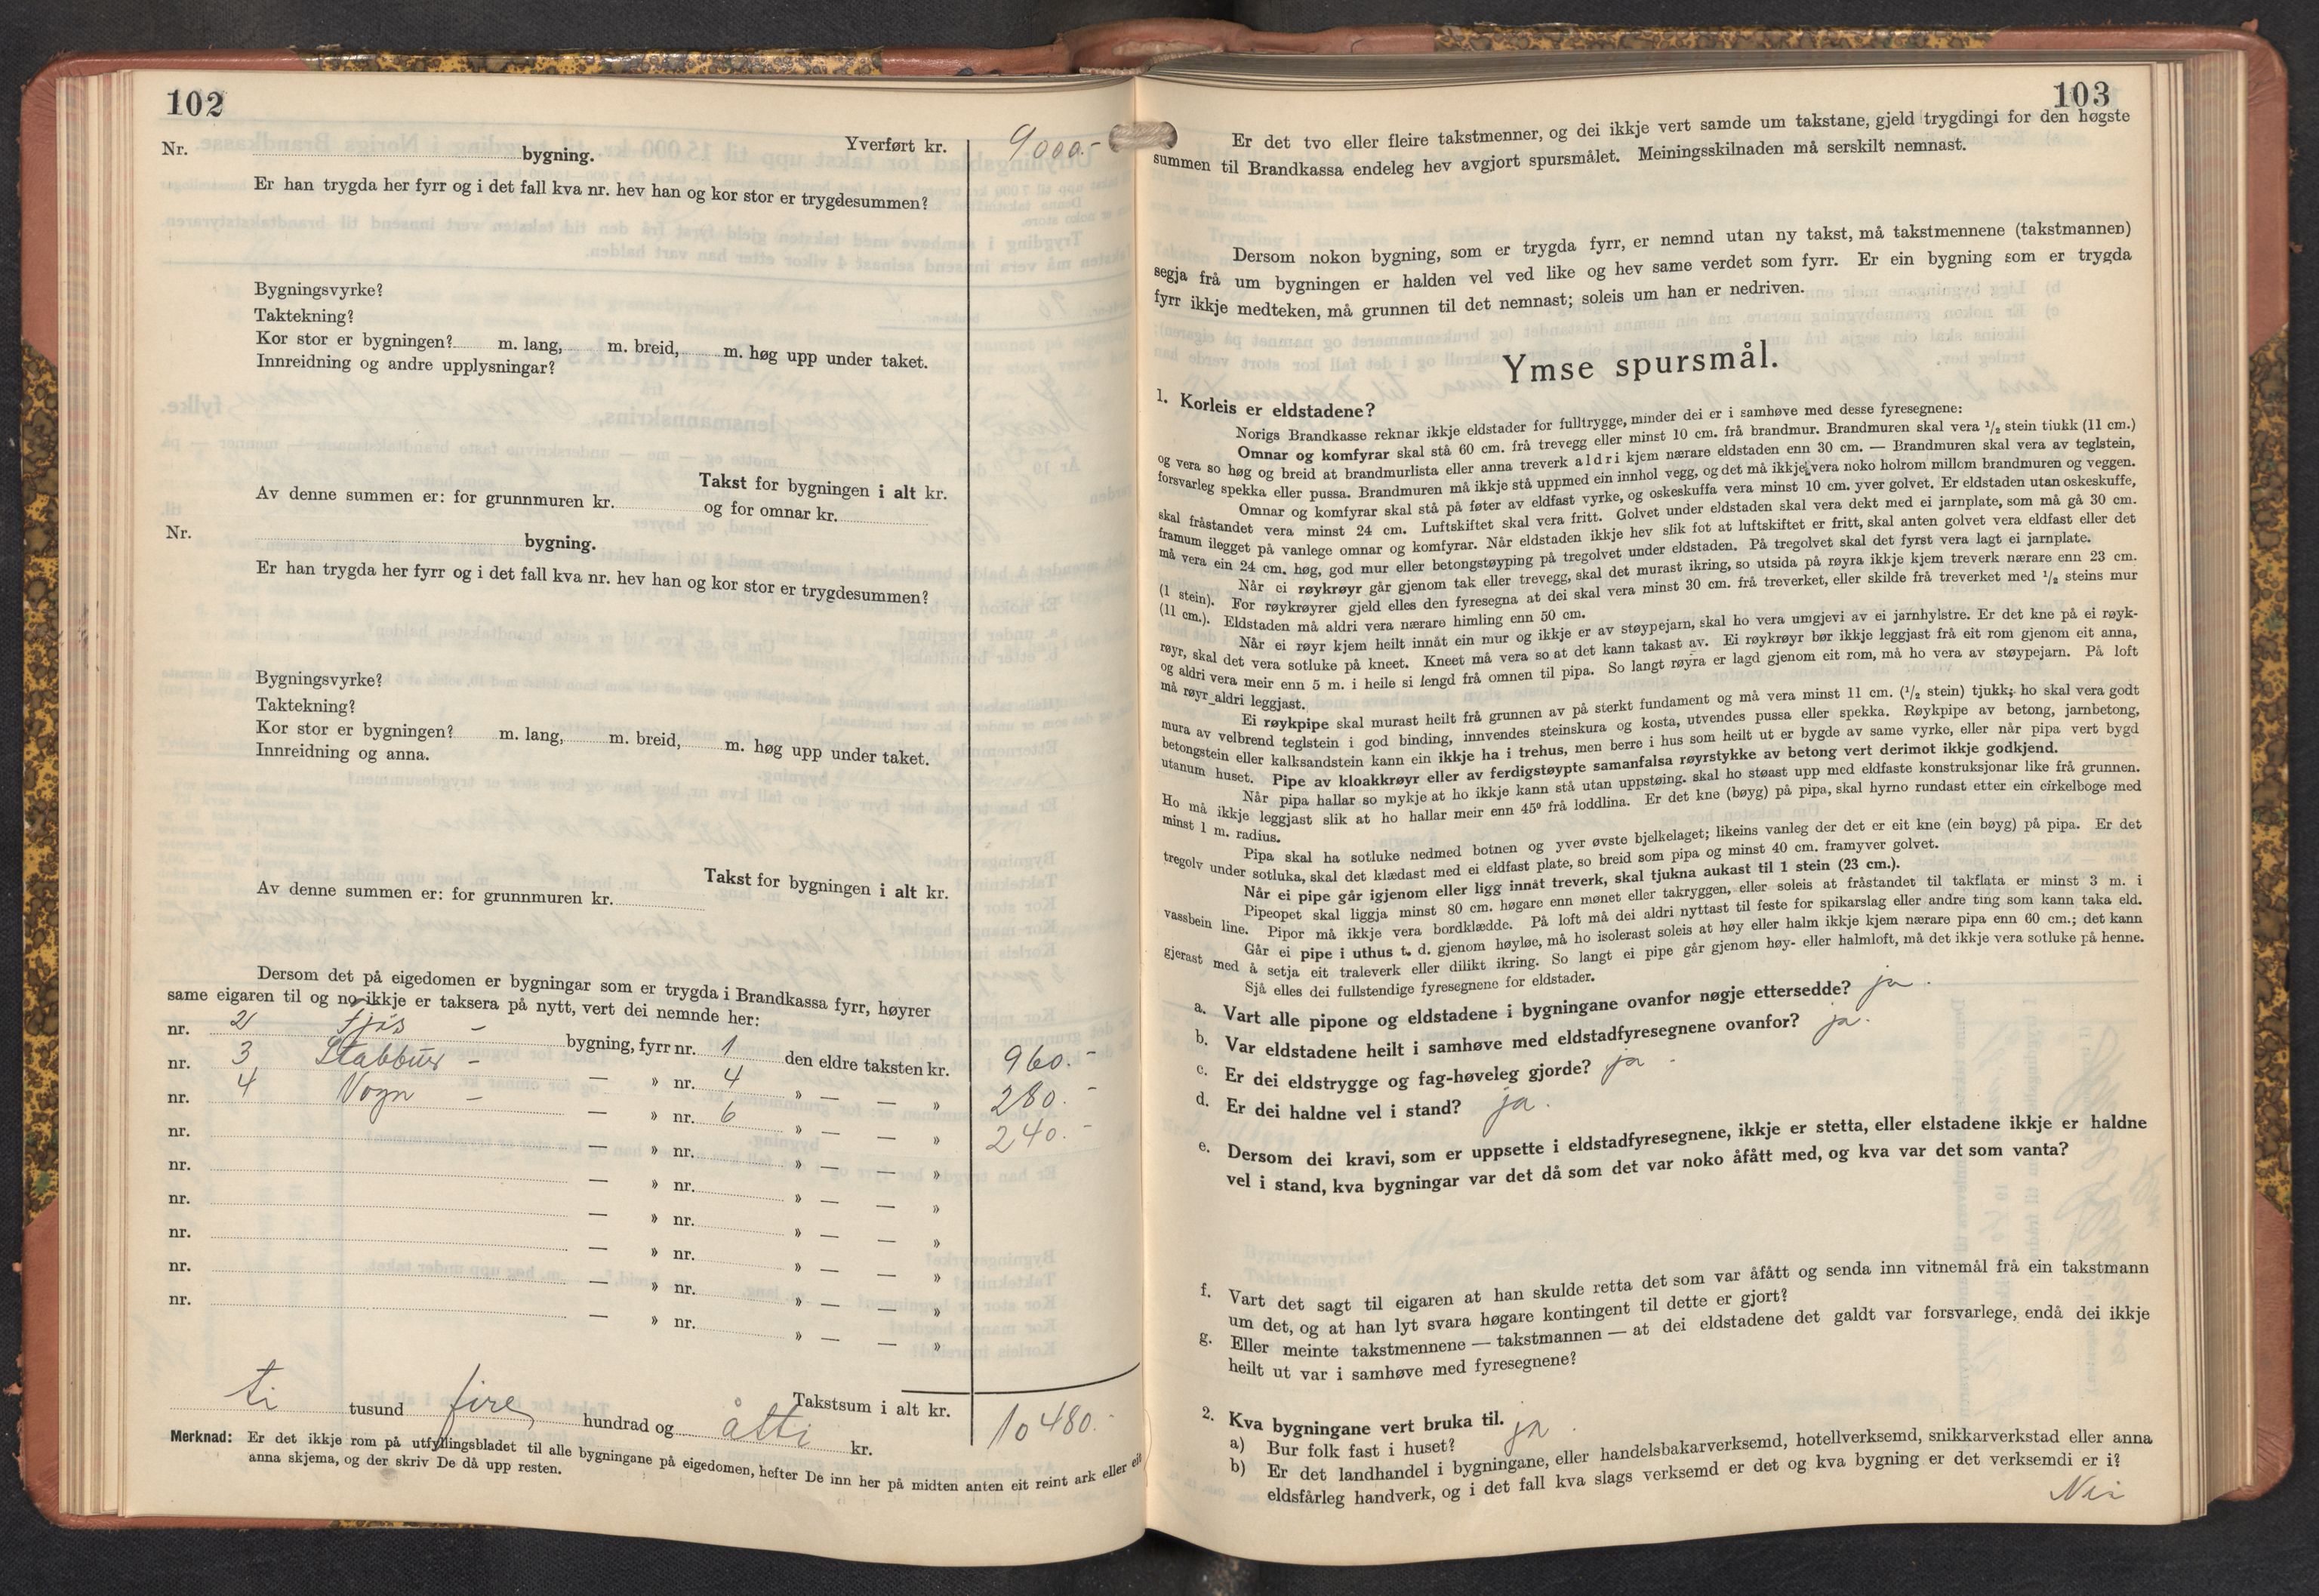 102
Yverført kr. 9000.-
Nr. bygning.
Er han trygda her fyrr og i det fall kva nr. hev han og kor stor er trygdesummen?
Bygningsvyrke?
Taktekning?
Kor stor er bygningen? m. lang, m. breid, m. høg upp under taket.
Innreidning og andre upplysningar?
Takst for bygningen i alt kr.
Av denne summen er: for grunnmuren kr. og for omnar kr.
Nr. bygning.
Er han trygda her fyrr og i det fall kva nr. hev han og kor stor er trygdesummen?
Bygningsvyrke?
Taktekning?
Kor stor er bygningen? m. lang, m. breid, m. høg upp under taket.
Innreidning og anna.
Takst for bygningen i alt kr.
Av denne summen er: for grunnmuren kr.
Dersom det på eigedomen er bygningar som er trygda i Brandkassa fyrr, høyrer
same eigaren til og no ikkje er taksera på nytt, vert dei nemnde her:
nr. 2 Fjós - bygning, fyrr nr. 1 den eldre taksten kr. 960.-
nr. 3 Stabbur - — » nr. 4 » — — » 280.-
nr. 4 Vogn - — » nr. 6 » — — » 240.-
nr. — » nr. » — — »
nr. — » nr. » — — »
nr. — » nr. » — — »
nr. — » nr. » — — »
nr. — » nr. » — — »
nr. — » nr. » — — »
Takstsum i alt kr. 10480.-
ti tusund fire hundrad og åtti kr.
Merknad: Er det ikkje rom på utfyllingsbladet til alle bygningane på eigedomen, hefter De inn her på midten anten eit reint ark eller eit
anna skjema, og der skriv De då upp resten.
103
Er det tvo eller fleire takstmenner, og dei ikkje vert samde um takstane, gjeld trygdingi for den høgste
summen til Brandkassa endeleg hev avgjort spursmålet. Meiningsskilnaden må serskilt nemnast.
Dersom nokon bygning, som er trygda fyrr, er nemnd utan ny takst, må takstmennene (takstmannen)
segja frå um bygningen er halden vel ved like og hev same verdet som fyrr. Er ein bygning som er trygda
fyrr ikkje medteken, må grunnen til det nemnast; soleis um han er nedriven.
Ymse spursmål.
1. Korleis er eldstadene?
Norigs Brandkasse reknar ikkje eldstader for fulltrygge, minder dei er i samhøve med desse fyresegnene:
Omnar og komfyrar skal stå 60 cm. frå trevegg eller minst 10 cm. frå brandmur. Brandmuren skal vera 1/2 stein tiukk (11 cm.)
og vera so høg og breid at brandmurlista eller anna treverk aldri kjem nærare eldstaden enn 30 cm. — Brandmuren skal vera av teglstein,
forsvarleg spekka eller pussa. Brandmuren må ikkje stå uppmed ein innhol vegg, og det må ikkje vera noko holrom millom brandmuren og veggen.
Omnar og komfyrar skal stå på føter av eldfast vyrke, og oskeskuffa vera minst 10 cm. yver golvet. Er eldstaden utan oskeskuffe,
skal fråstandet vera minst 24 cm. Luftskiftet skal vera fritt. Golvet under eldstaden skal vera dekt med ei jarnplate, som må gå 30 cm.
framum ilegget på vanlege omnar og komfyrar. Når eldstaden ikkje hev slik fot at luftskiftet er fritt, skal anten golvet vera eldfast eller det
må vera ein 24 cm. høg, god mur eller betongstøyping på tregolvet under eldstaden. På tregolvet skal det fyrst vera lagt ei jarnplate.
Når ei røykrøyr går gjenom tak eller trevegg, skal det murast ikring, so utsida på røyra ikkje kjem treverk nærare enn 23 cm.
(1 stein). For røykrøyrer gjeld elles den fyresegna at dei skal vera minst 30 cm. frå treverket, eller skilde frå treverket med 1/2 steins mur
(11 cm.). Eldstaden må aldri vera nærare himling enn 50 cm.
Når ei røyr kjem heilt innåt ein mur og ikkje er av støypejarn, skal ho vera umgjevi av ei jarnhylstre. Er det kne på ei røyk-
røyr, skal det vera sotluke på kneet. Kneet må vera so at det kann takast av. Ei røykrøyr bør ikkje leggjast frå eit rom gjenom eit anna,
og aldri vera meir enn 5 m. i heile si lengd frå omnen til pipa. So langt røyra er lagd gjenom eit rom, må ho vera av støypejarn. På loft
må røyr aldri leggjast.
Ei røykpipe skal murast heilt frå grunnen av på sterkt fundament og må vera minst 11 cm. (1/2 stein) tjukk; ho skal vera godt
mura av velbrend teglstein i god binding, innvendes steinskura og kosta, utvendes pussa eller spekka. Røykpipe av betong, jarnbetong,
betongstein eller kalksandstein kann ein ikkje ha i trehus, men berre i hus som heilt ut er bygde av same vyrke, eller når pipa vert bygd
utanum huset. Pipe av kloakkrøyr eller av ferdigstøypte samanfalsa røyrstykke av betong vert derimot ikkje godkjend.
Når pipa hallar so mykje at ho ikkje kann stå utan uppstøing. skal ho støast upp med eldfaste konstruksjonar like frå grunnen.
Ho må ikkje leggjast slik at ho hallar meir enn 45° frå loddlina. Er det kne (bøyg) på pipa, skal hyrno rundast etter ein cirkelboge med
minst 1 m. radius.
Pipa skal ha sotluke nedmed botnen og yver øvste bjelkelaget; likeins vanleg der det er eit kne (ein bøyg) på pipa. Er det
tregolv under sotluka, skal det klædast med ei eldfast plate, so breid som pipa og minst 40 cm. framyver golvet.
Når ei pipe går igjenom eller ligg innåt treverk, skal tjukna aukast til 1 stein (23 cm.).
Pipeopet skal liggja minst 80 cm. høgare enn mønet eller takryggen, eller soleis at fråstandet til takflata er minst 3 m. i
vassbein line. Pipor må ikkje vera bordklædde. På loft må dei aldri nyttast til feste for spikarslag eller andre ting som kann taka eld.
Går ei pipe i uthus t. d. gjenom høyløe, må ho isolerast soleis at høy eller halm ikkje kjem nærare pipa enn 60 cm.; det kann
gjerast med å setja eit traleverk eller dilikt ikring. So langt ei pipe går gjenom høy- eller halmloft, må det ikkje vera sotluke på henne.
Sjå elles dei fullstendige fyresegnene for eldstader.
a. Vart alle pipone og eldstadene i bygningane ovanfor nøgje ettersedde? ja.
b. Var eldstadene heilt i samhøve med eldstadfyresegnene ovanfor? ja.
c. Er dei eldstrygge og fag-høveleg gjorde? ja -
d. Er dei haldne vel i stand? ja.
e. Dersom dei kravi, som er uppsette i eldstadfyresegnene, ikkje er stetta, eller elstadene ikkje er haldne
vel i stand, kva bygningar var det då som det var noko åfått med, og kva var det som vanta?
f. Vart det sagt til eigaren at han skulde retta det som var åfått og senda inn vitnemål frå ein takstmann
um det, og at han lyt svara høgare kontingent til dette er gjort?
g. Eller meinte takstmennene — takstmannen — at dei eldstadene det galdt var forsvarlege, endå dei ikkje
heilt ut var i samhøve med fyresegnene?
2. Kva bygningane vert bruka til.
a) Bur folk fast i huset? ja.
b) Er det landhandel i bygningane, eller handelsbakarverksemd, hotellverksemd, snikkarverkstad eller anna
eldsfårleg handverk, og i det fall kva slags verksemd er det og kva bygning er det verksemdi er i?
Nei